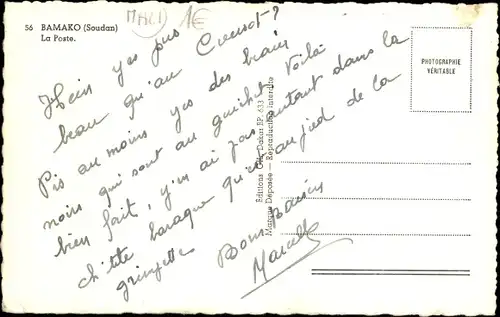 56 BAMAKO (Soudan)
La Poste.
MALI 1€
Hein yes pus
beau qu'au Creusot?
Pis au moins yes des biaux
noirs qui sont au guichet. Voilà
bien fait, j'm'ai pas autant dans la
ch'tite baraque qu'est au pied de la
grimpette
Bons Baisers
Marcelle
Editions Dakar BP. 633
Marque Déposée — Reproduction interdite
PHOTOGRAPHIE
VÉRITABLE